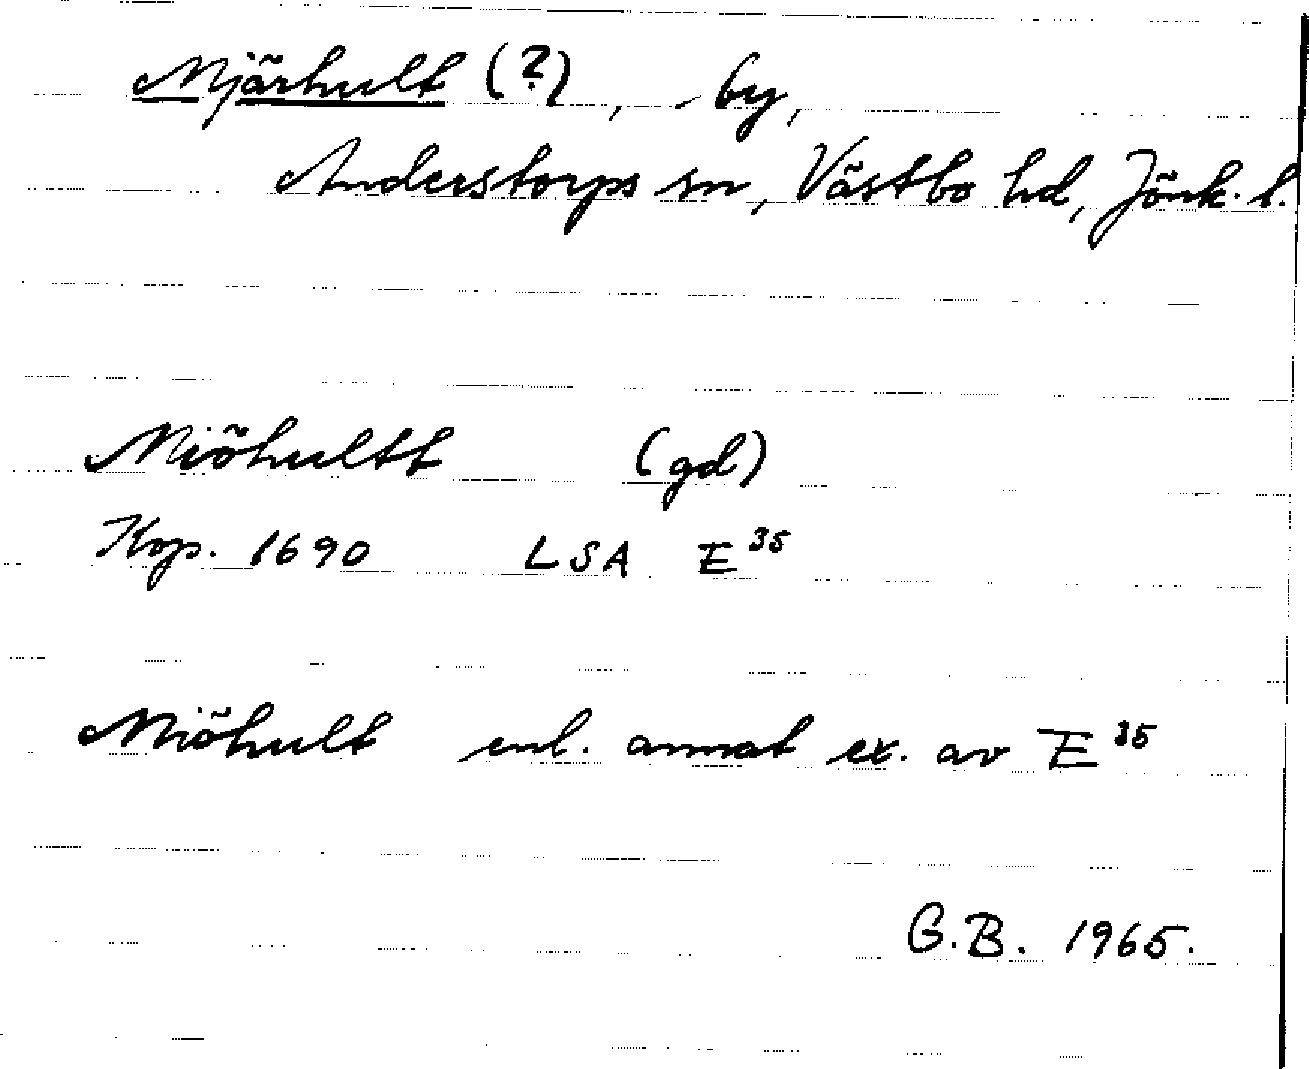 Mjärhult (?), by,
Anderstorps sn, Västbo hd, Jönk. l.
Miöhultt (gd)
Kop. 1690 LSA E 35
Miöhult enl. annat ex. av E 35
G.B. 1965.